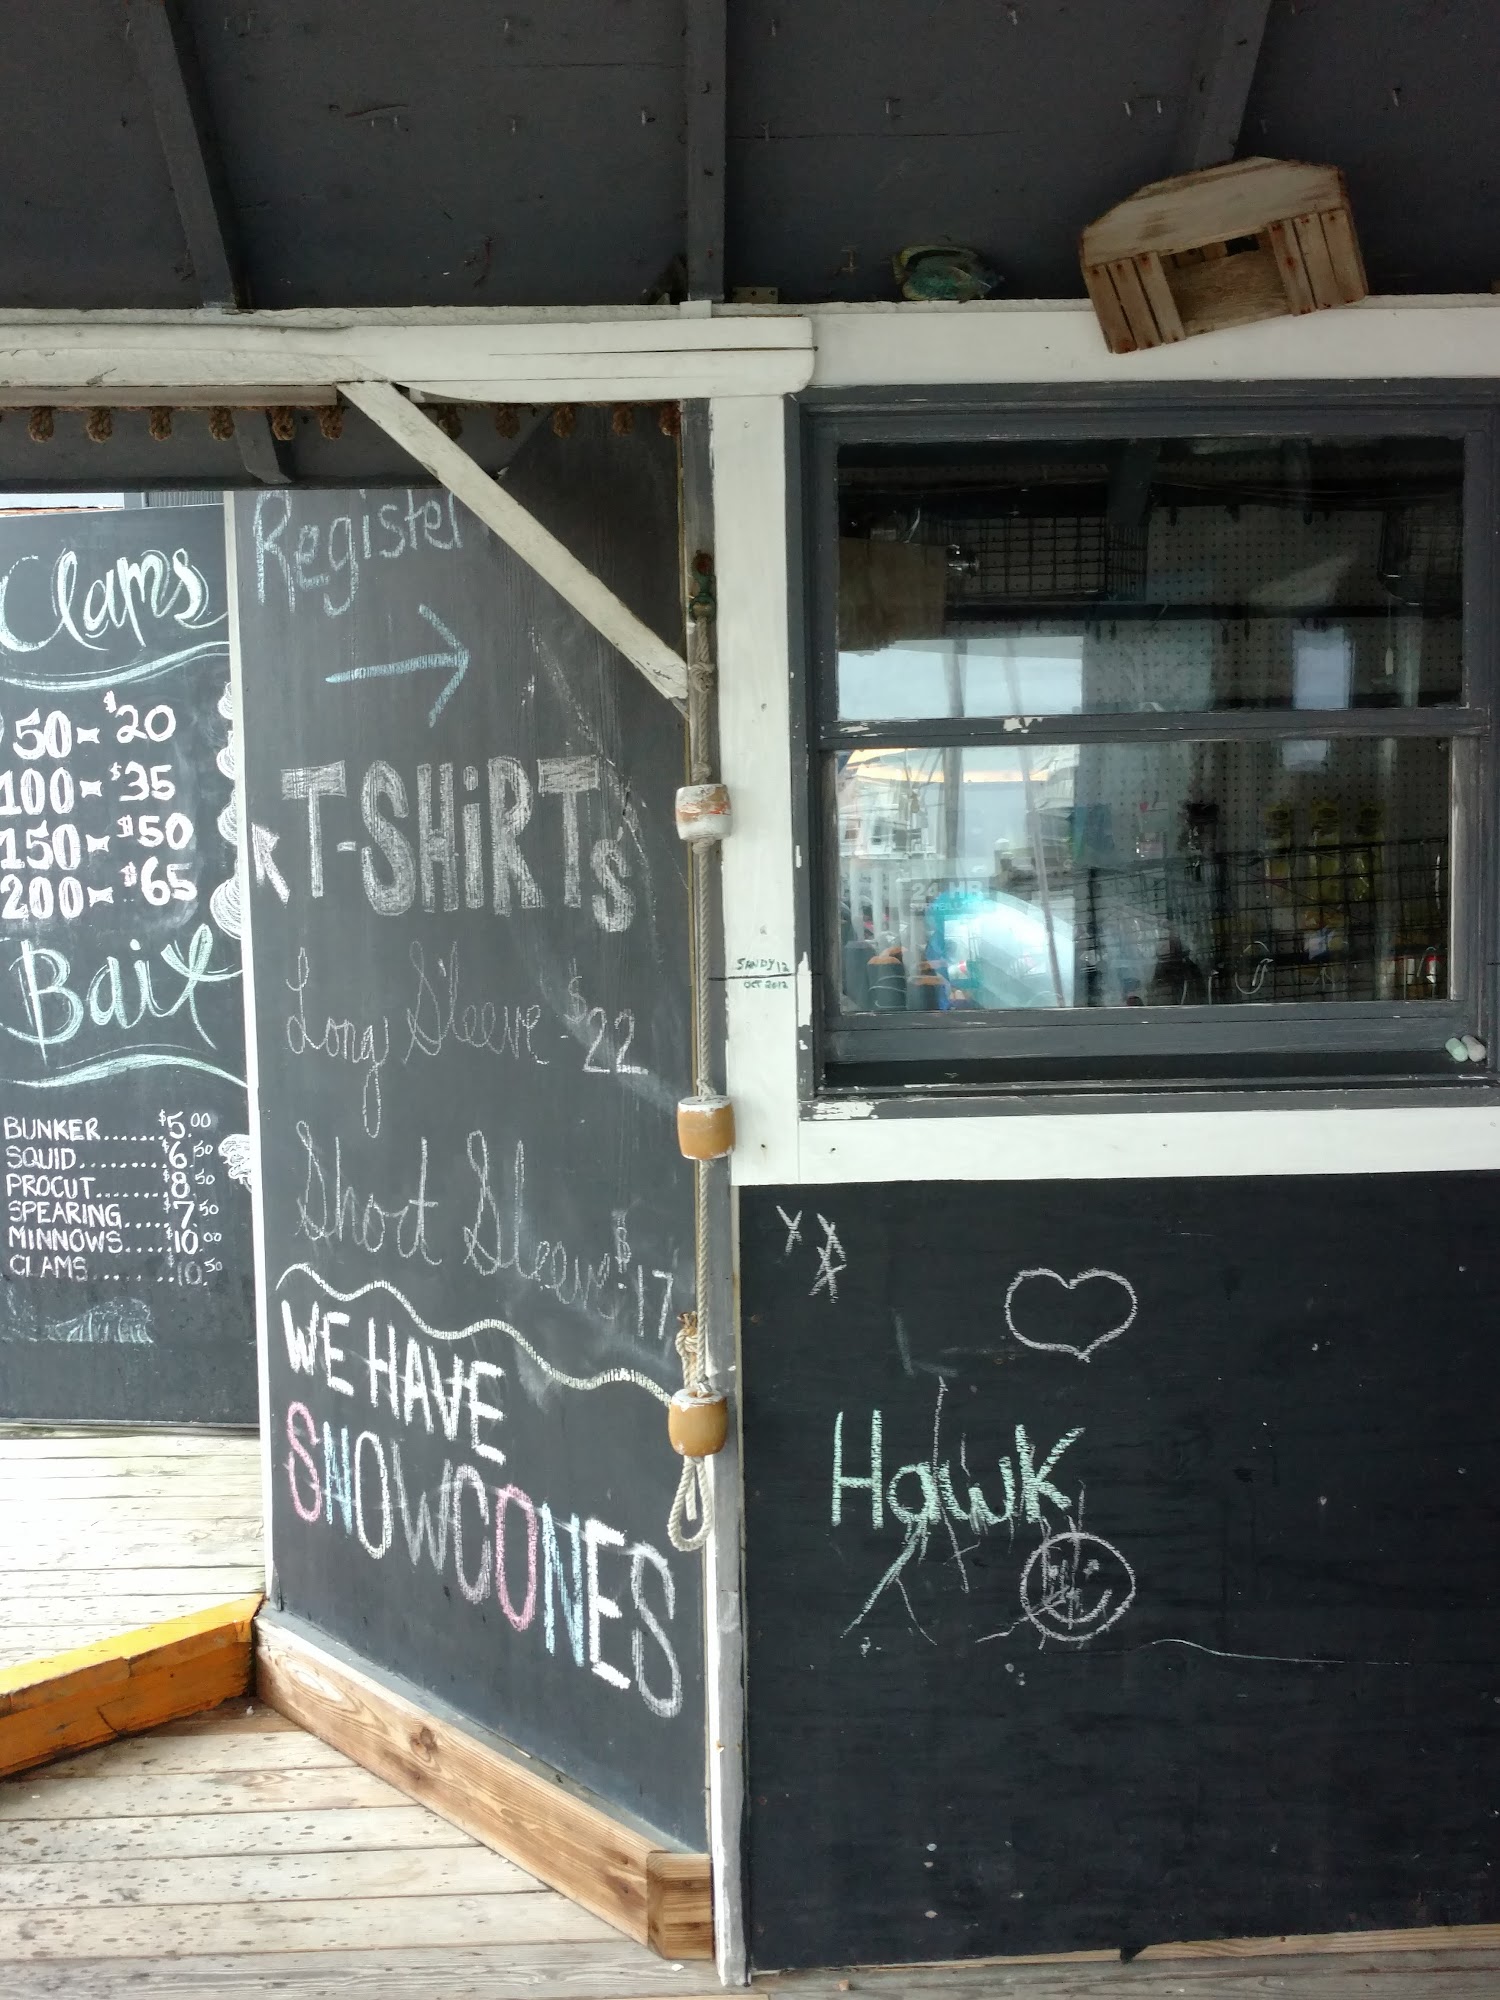 Clams
50 - $20
100 - $35
150 - $50
200 - $65
Bait
BUNKER.......$5.00
SQUID.........$6.50
PROCUT........$8.50
SPEARING.....$7.50
MINNOWS.....$10.00
CLAMS........$10.50
Register
T-SHiRTs
Long Sleeve $22
Short Sleeve $17
WE HAVE
SNOWCONES
SANDY 12
OCT 2012
24 HR
Hawk